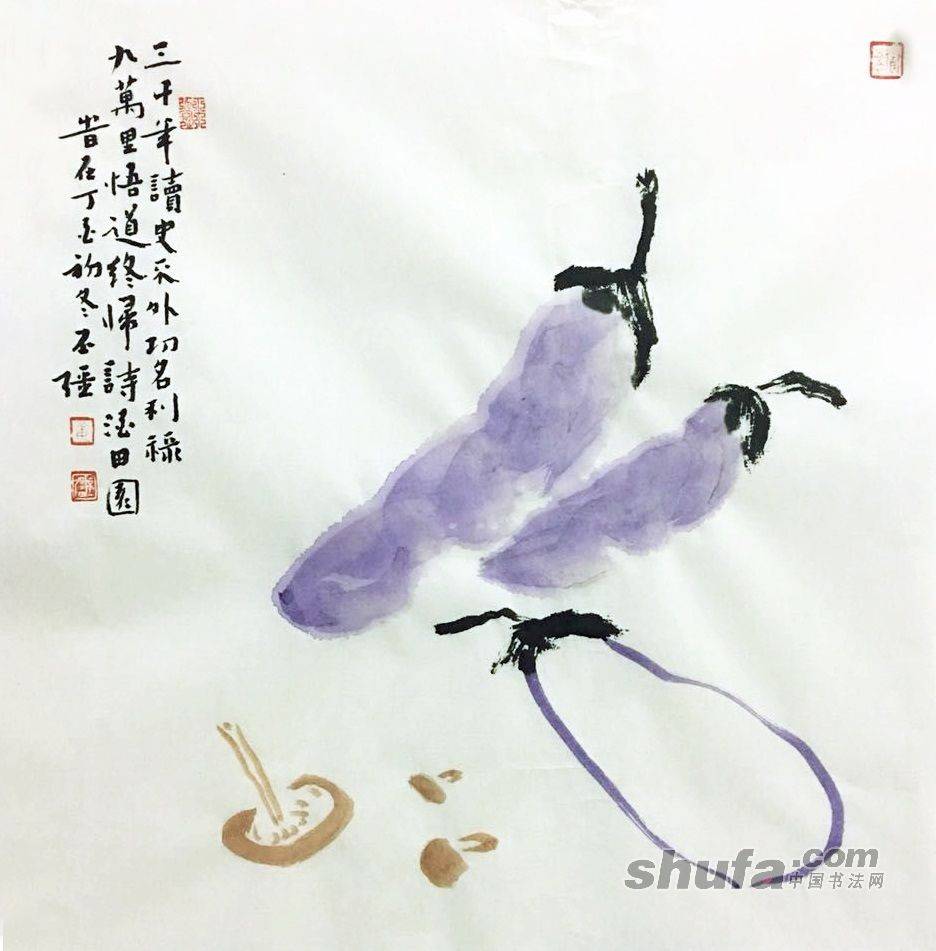 三千年讀史不外功名利祿
九萬里悟道終歸詩酒田園
旹在丁酉初冬
shufa.com
中国书法网